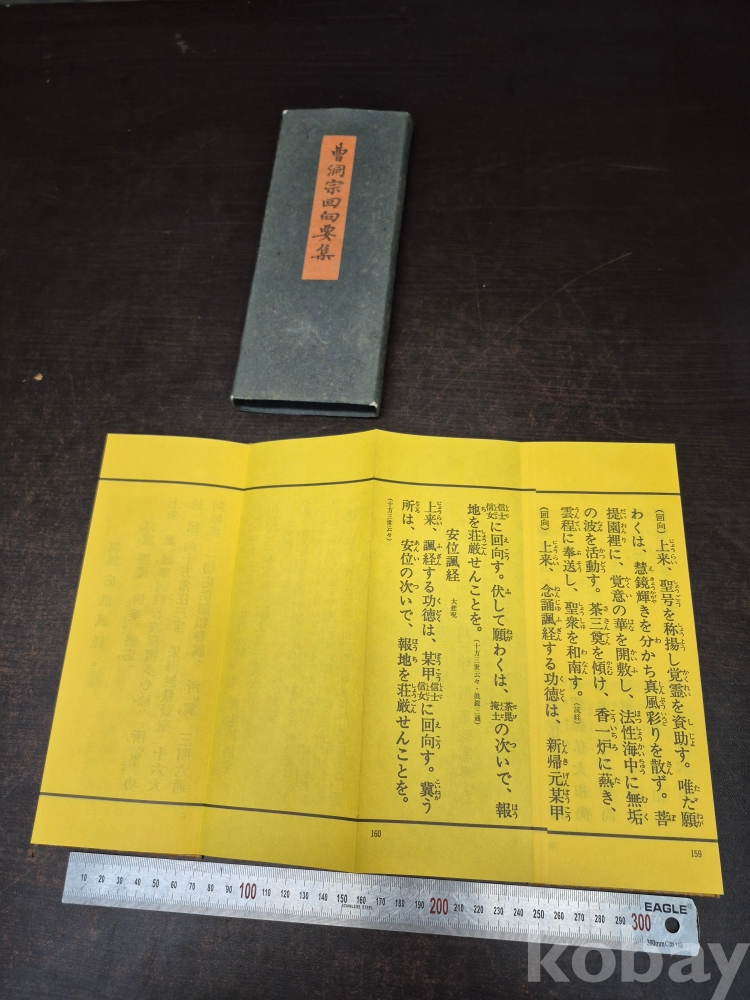 曹洞宗回向要集
(回向) 上来、聖号を称揚し覚霊を資助す。唯だ願
わくは、慧鏡輝きを分かち真風彩りを散ず。菩
提園裡に、覚意の華を開敷し、法性海中に無垢
の波を活動す。茶三奠を傾け、香一炉に爇き、
雲程に奉送し、聖衆を和南す。(読経)
(回向) 上来、念誦諷経する功徳は、新帰元某甲
159
信士信女に回向す。伏して願わくは、荼毘掩土の次いで、報
地を荘厳せんことを。(十方三世云々・鼓鈸三通)
安位諷経 大悲呪
上来、諷経する功徳は、某甲信士信女に回向す。冀う
所は、安位の次いで、報地を荘厳せんことを。
(十方三世云々)
160
10 20 30 40 50 60 70 80 90 100 110 120 130 140 150 160 170 180 190 200 210 220 230 240 250 260 270 280 290 300
STAINLESS STEEL
EAGLE
kobay